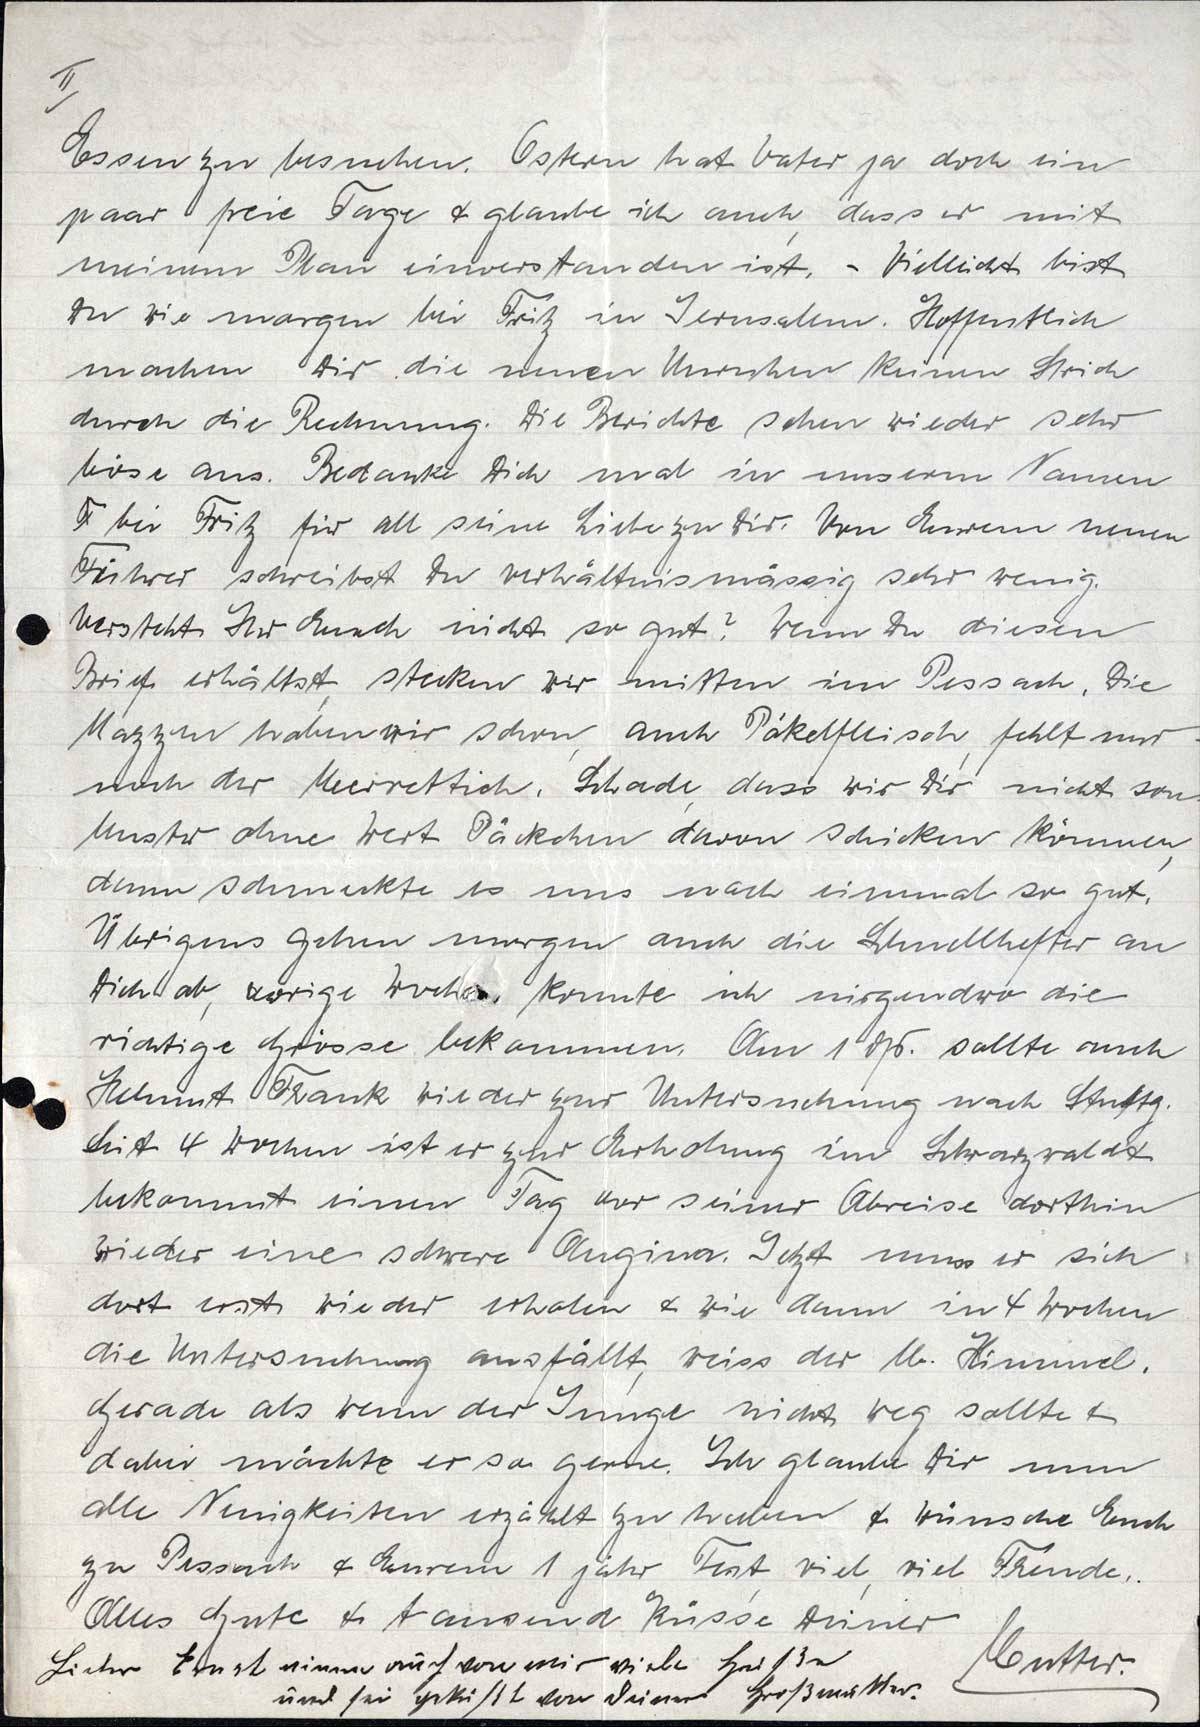 II
Essen zu besuchen. Ostern hat Vater ja doch ein
paar freie Tage & glaube ich auch, dass er mit
meinem Plan einverstanden ist. - Vielleicht bist
Du wie morgen bei Fritz in Jerusalem. Hoffentlich
machen Dir die neuen Unruhen keinen Strich
durch die Rechnung. Die Berichte sehen wieder sehr
böse aus. Bedanke Dich mal in unserm Namen
bei Fritz für all seine Liebe zu Dir. Von Eurem neuen
Führer schreibst Du verhältnismässig sehr wenig.
Versteht Ihr Euch nicht so gut? Wenn Du diesen
Brief erhältst, stecken wir mitten im Pessach. Die
Mazzen haben wir schon, auch Pökelfleisch, fehlt nur
noch der Meerrettich. Schade, dass wir Dir nicht son
Muster ohne Wert Päckchen davon schicken können,
dann schmeckte es uns noch einmal so gut.
Übrigens gehen morgen auch die Schnellhefter an
Dich ab, vorige Woche konnte ich nirgendwo die
richtige Grösse bekommen. Am 1 sollte auch
Helmut Frank wieder zur Untersuchung nach Stuttg.
Seit 4 Wochen ist er zur Erholung im Schwarzwald &
bekommt einen Tag vor seiner Abreise dorthin
wieder eine schwere Angina. Jetzt muss er sich
dort erst wieder erholen & wie dann in 4 Wochen
die Untersuchung ausfällt, weiss der lb. Himmel.
Gerade als wenn der Junge nicht weg sollte &
dabei möchte er so gerne. Ich glaube Dir nun
alle Neuigkeiten erzählt zu haben & wünsche Euch
zu Pessach & Eurem 1 jähr Fest, viel, viel Freude.
Alles Gute & tausend Küsse Deiner
Mutter.
Lieber Ernst nimm auch von mir viele Grüße
und sei geküßt von Deiner Großmutter.